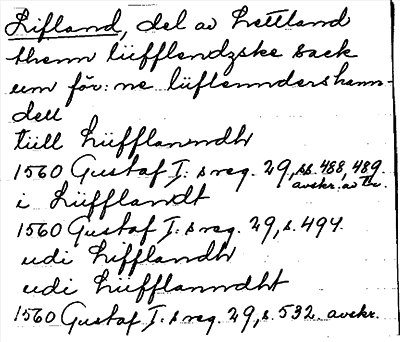 Lifland, del av Lettland
thenn lüfflendzske sack
um för:ne lüflenndershann-
dell
till Lüfflanndh
1560 Gustaf I:s reg. 29, ss. 488, 489.
avskr. av Th.
i Lüfflandt
1560 Gustaf I:s reg. 29, s. 494.
udi Lifflandh
udi Lüfflanndht
1560 Gustaf I:s reg. 29, s. 532. avskr.